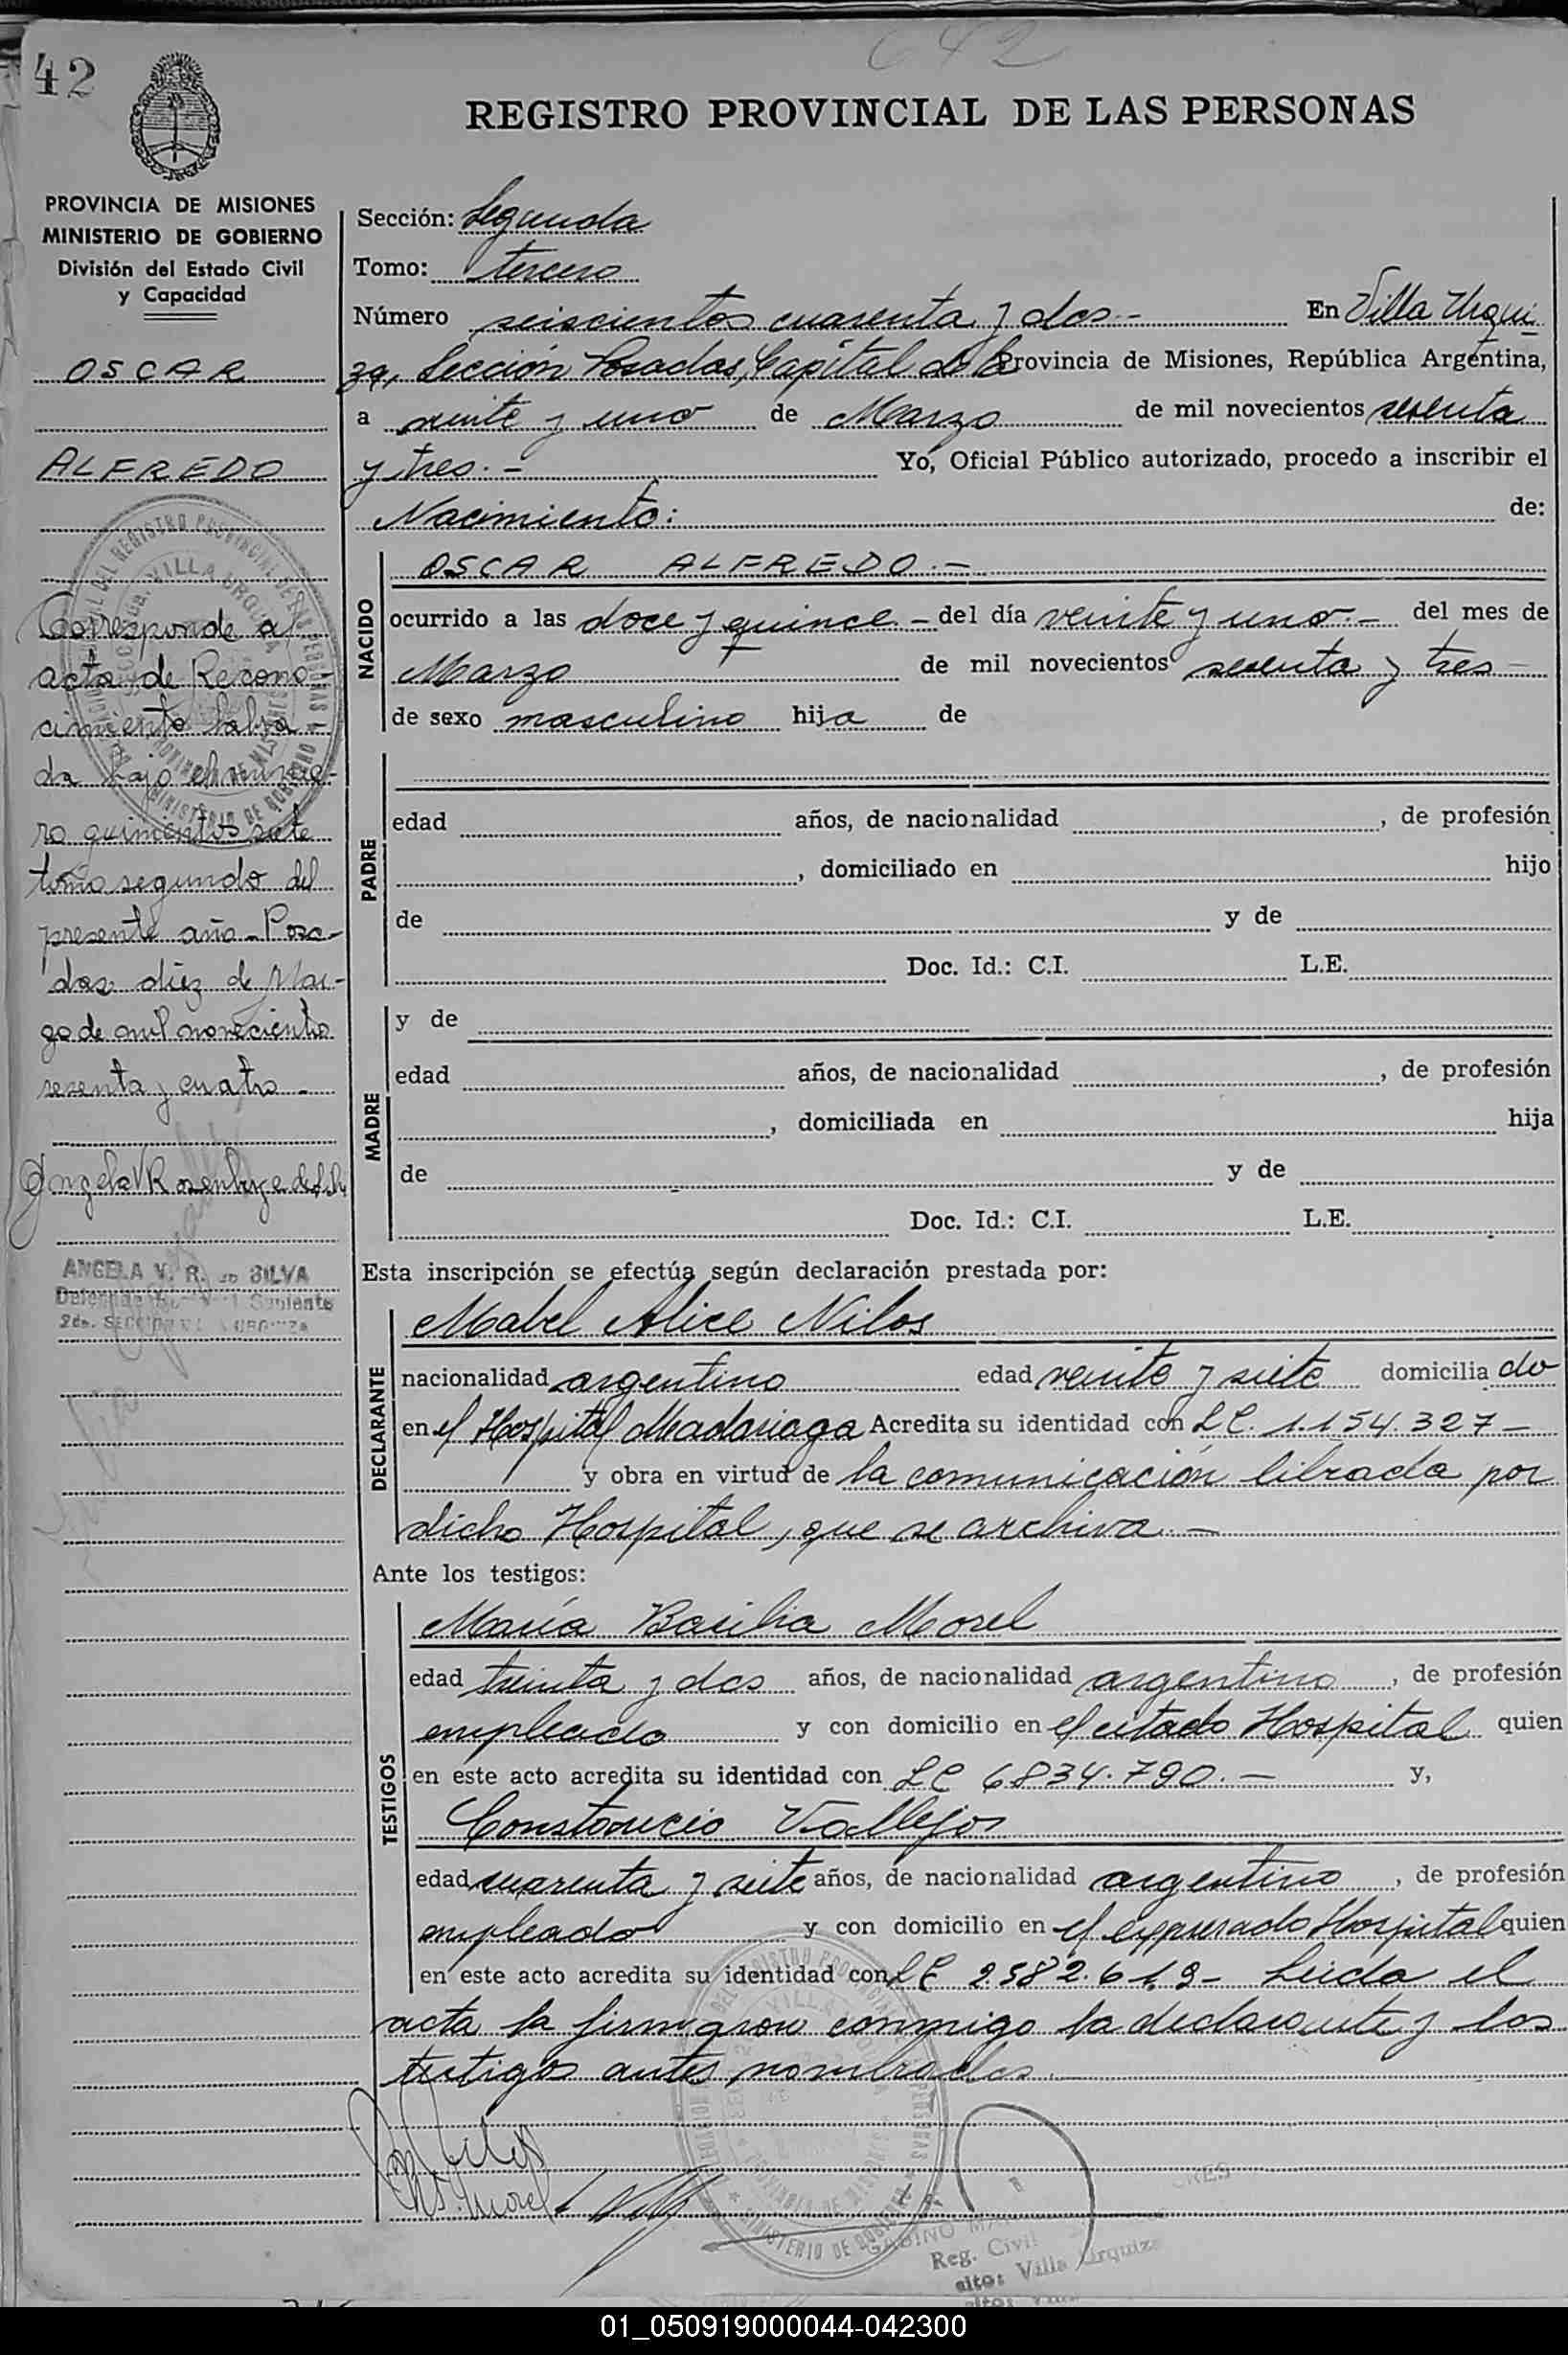 642
42
REGISTRO PROVINCIAL DE LAS PERSONAS
PROVINCIA DE MISIONES
MINISTERIO DE GOBIERNO
División del Estado Civil
y Capacidad
OSCAR
ALFREDO
Corresponde al
acta de Recono-
cimiento labra-
da bajo el núme-
ro quinientos siete
tomo segundo del
presente año - Posa-
das diez de Mar-
zo de mil novecientos
sesenta y cuatro -
ANGELA V. R. DE SILVA
Sección: Segunda
Tomo: tercero
Número seiscientos cuarenta y dos.- En Villa Urqui
za, Sección Posadas, Capital de la Provincia de Misiones, República Argentina,
a veinte y uno de Marzo de mil novecientos sesenta
y tres.- Yo, Oficial Público autorizado, procedo a inscribir el
Nacimiento: de:
NACIDO
OSCAR ALFREDO.-
ocurrido a las doce y quince - del día veinte y uno.- del mes de
Marzo de mil novecientos sesenta y tres-
de sexo masculino hijo de
PADRE
edad años, de nacionalidad , de profesión
, domiciliado en hijo
de y de
Doc. Id.: C.I. L.E.
MADRE
y de
edad años, de nacionalidad , de profesión
, domiciliada en hija
de y de
Doc. Id.: C.I. L.E.
Esta inscripción se efectúa según declaración prestada por:
DECLARANTE
Mabel Alice Nilos
nacionalidad argentino edad veinte y siete domicilia do
en el Hospital Madariaga Acredita su identidad con L.C. 1.154.327-
y obra en virtud de la comunicación librada por
dicho Hospital, que se archiva.-
Ante los testigos:
TESTIGOS
María Basilia Morel
edad treinta y dos años, de nacionalidad argentino, de profesión
empleado y con domicilio en el citado Hospital quien
en este acto acredita su identidad con LC 6834.790.- y,
Constancio Vallejos
edad cuarenta y siete años, de nacionalidad argentino, de profesión
empleado y con domicilio en el expresado Hospital quien
en este acto acredita su identidad con LE 2.582.619- Leída el
acta la firmaron conmigo la declarante y los
testigos antes nombrados.
Reg. Civil
Villa Urquiza
01_050919000044-042300